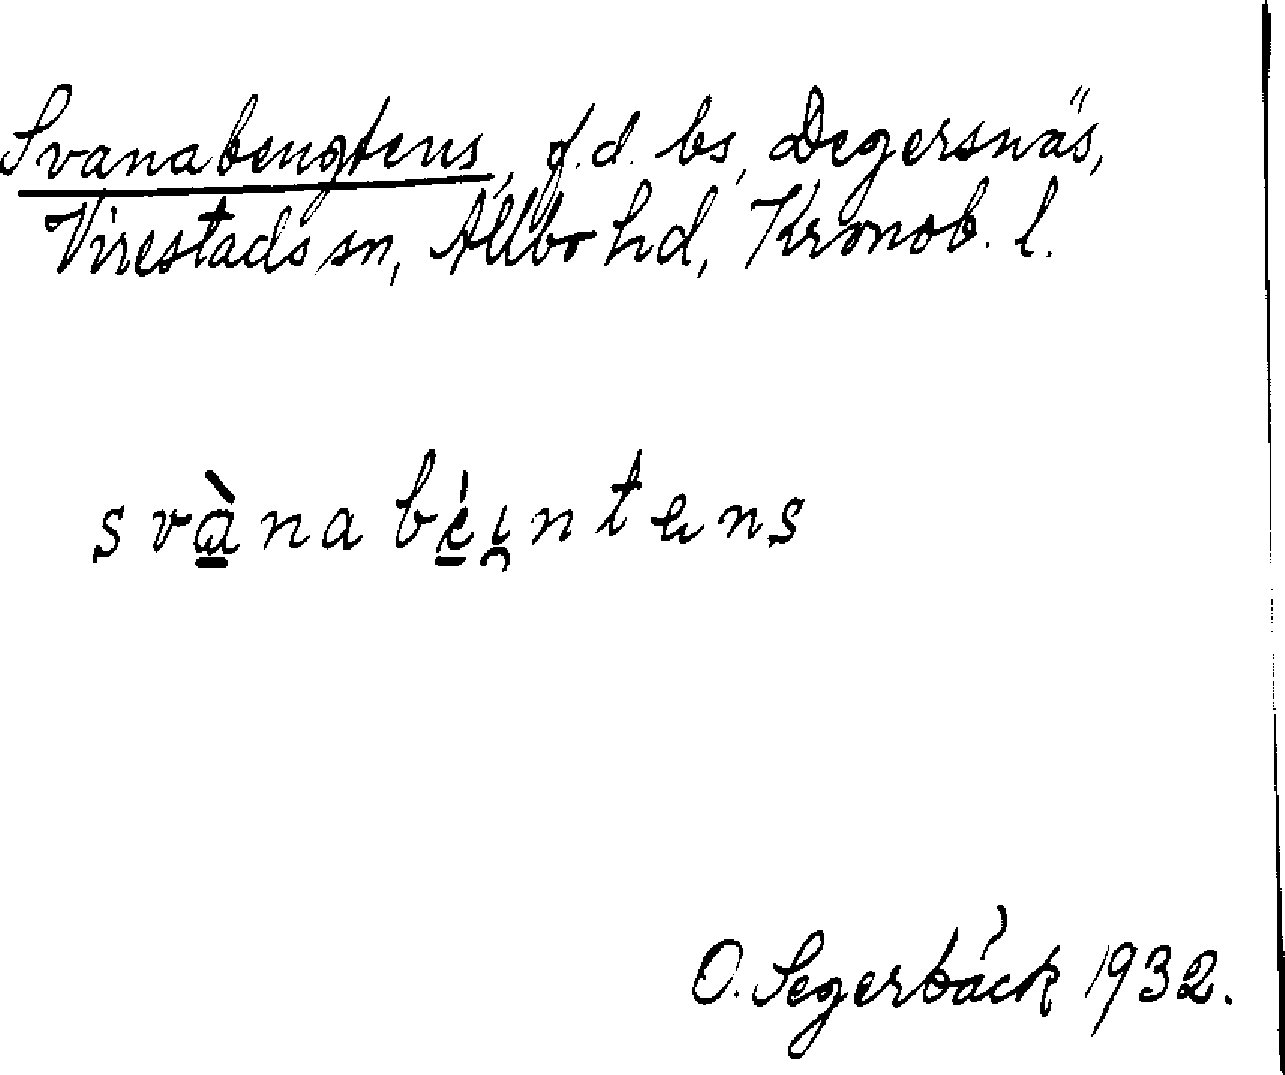 Svanabengtens, f.d. bs, Degersnäs,
Virestads sn, Allbo hd, Kronob. l.
svànabéi̯ntens
O. Segerbäck 1932.